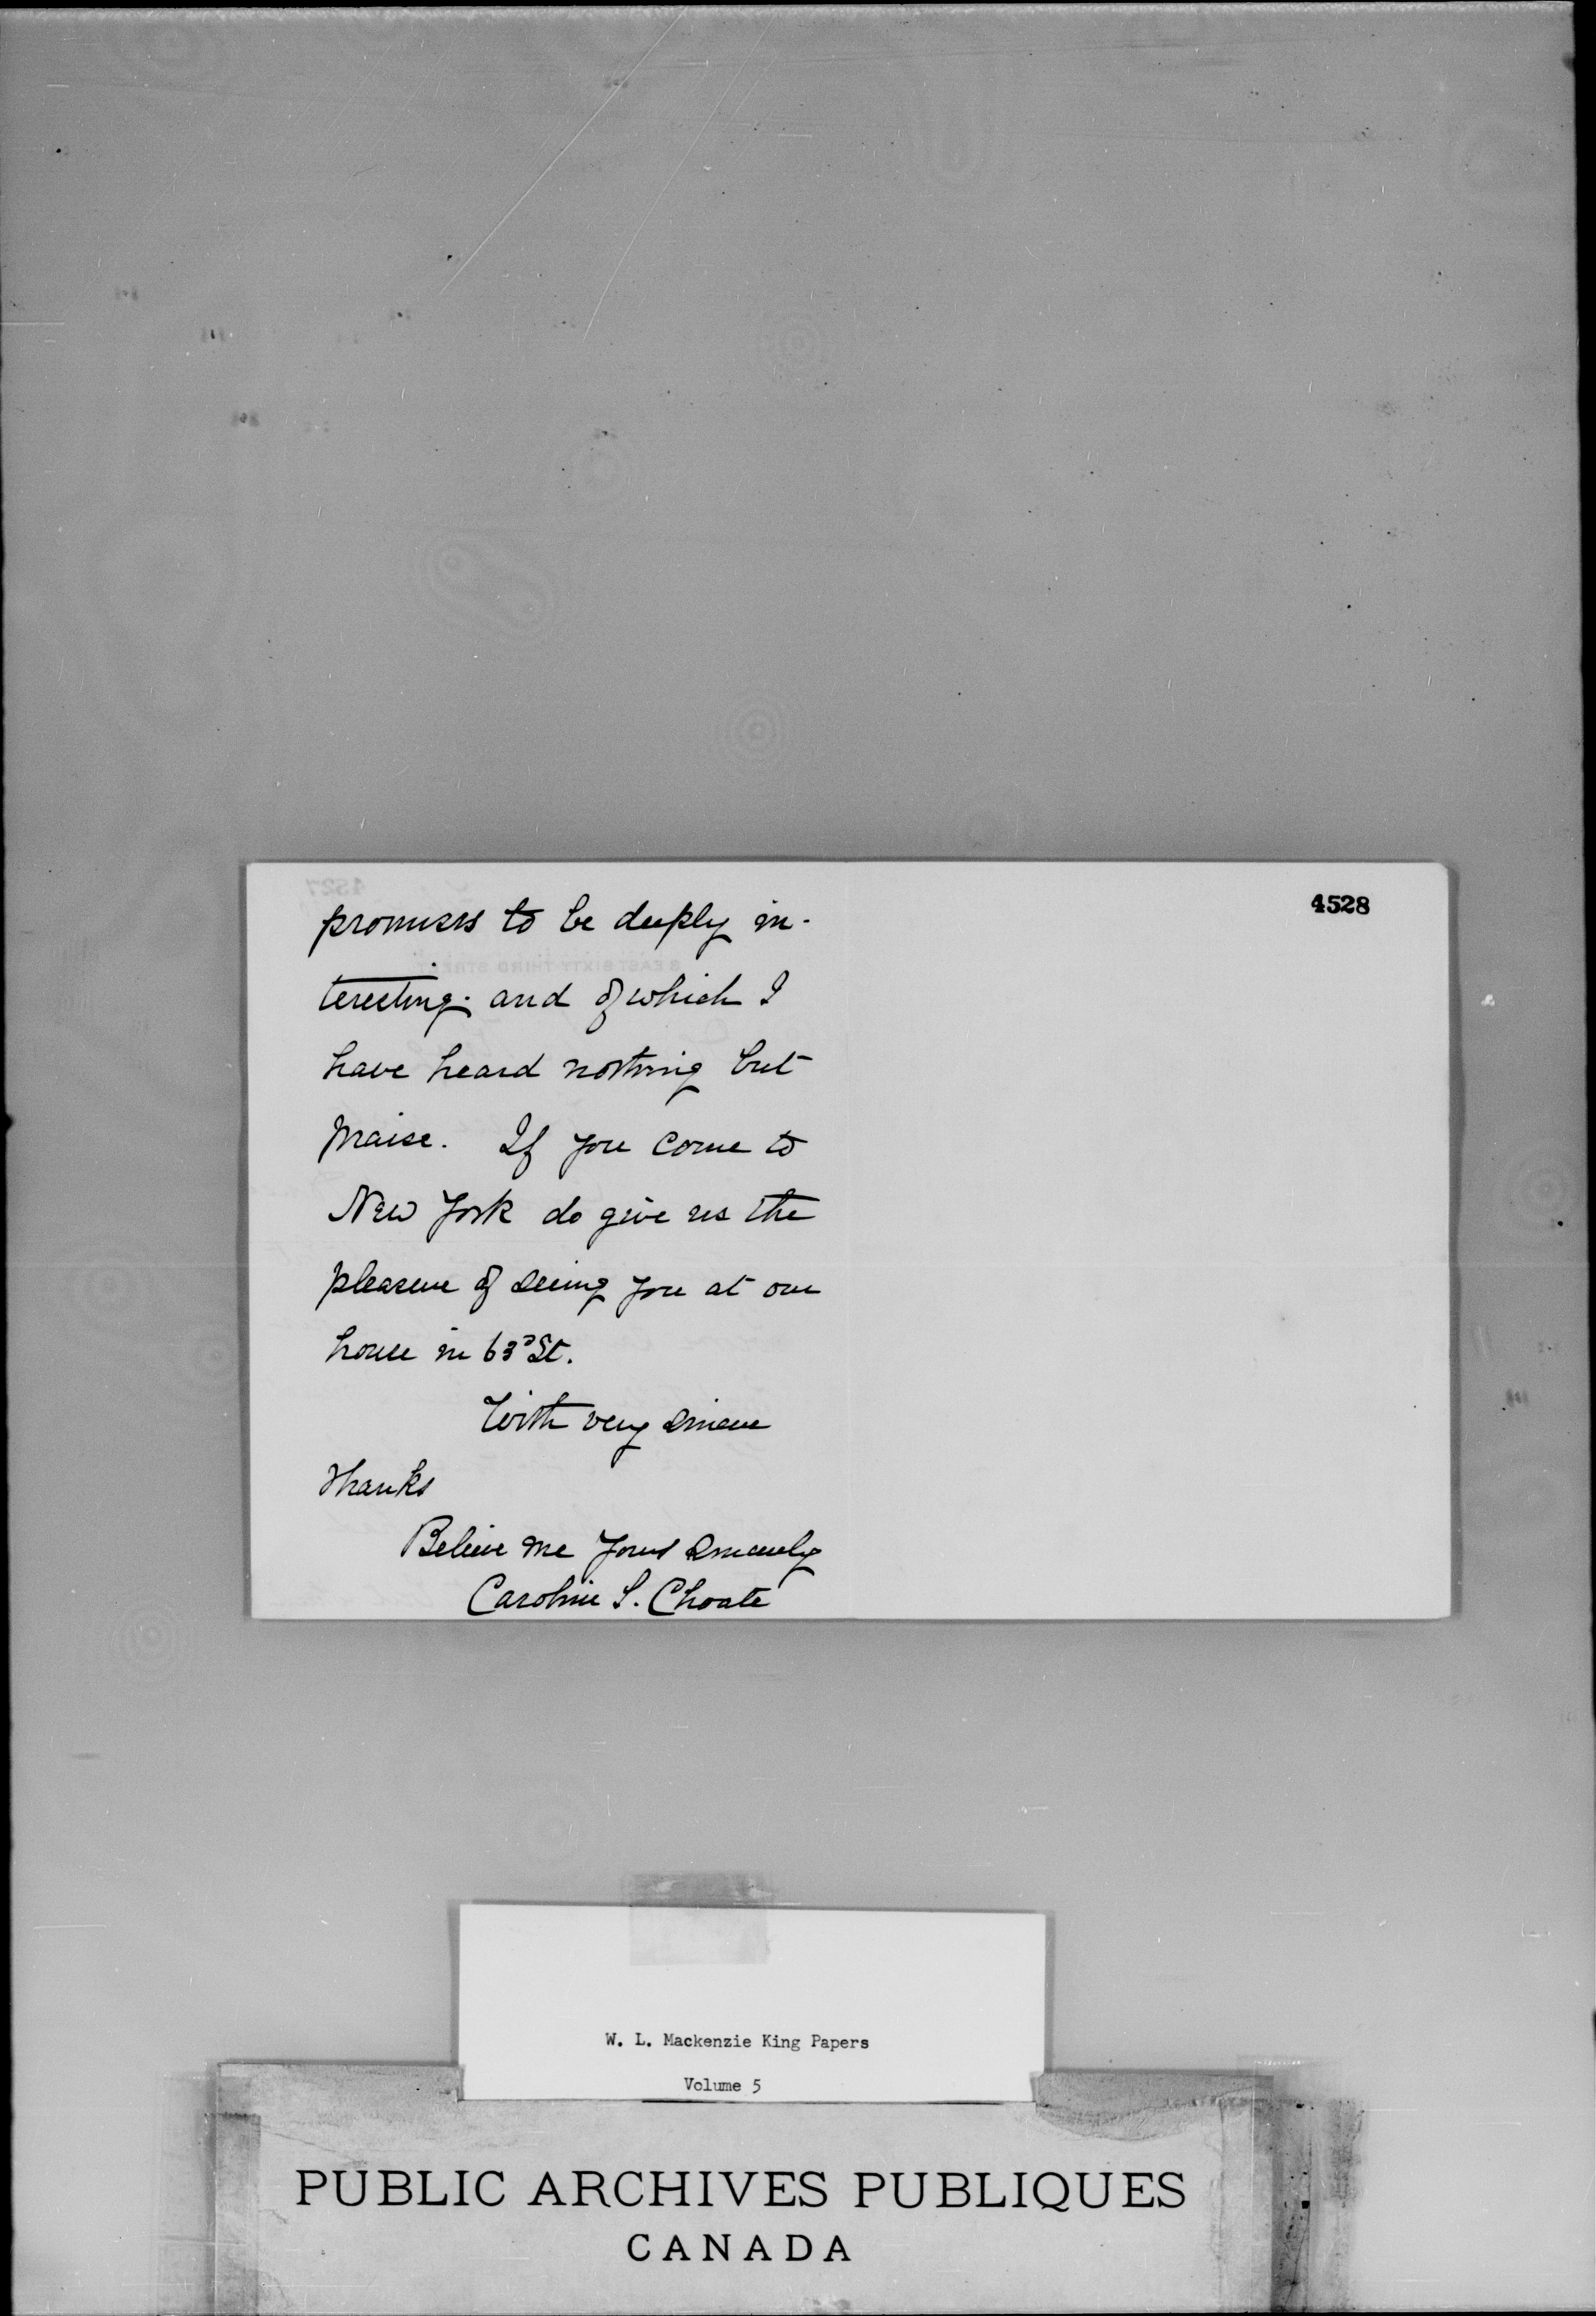 4528
promises to be deeply in-
teresting. and of which I
have heard nothing but
praise. If you come to
New York do give us the
pleasure of seeing you at our
house in 63d St.
With very sincere
thanks
Believe me yours sincerely
Caroline S. Choate
W. L. Mackenzie King Papers
Volume 5
PUBLIC ARCHIVES PUBLIQUES
CANADA